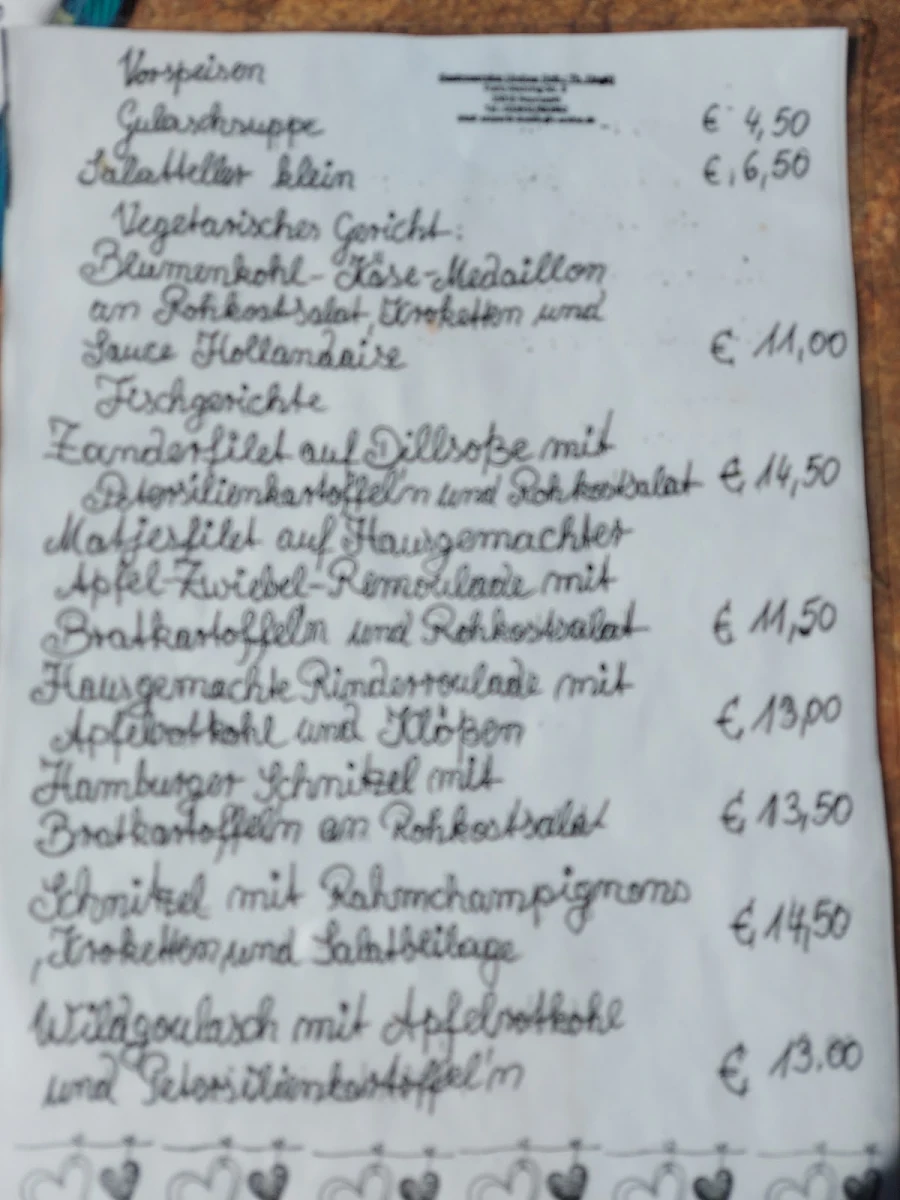 Vorspeisen
Gulaschsuppe € 4,50
Salatteller klein € 6,50
Vegetarisches Gericht:
Blumenkohl-Käse-Medaillon
an Rohkostsalat, Kroketten und
Sauce Hollandaise € 11,00
Fischgerichte
Zanderfilet auf Dillsoße mit
Petersilienkartoffel'n und Rohkostsalat € 14,50
Matjesfilet auf Hausgemachter
Apfel-Zwiebel-Remoulade mit
Bratkartoffeln und Rohkostsalat € 11,50
Hausgemachte Rinderroulade mit
Apfelrotkohl und Klößen € 13,00
Hamburger Schnitzel mit
Bratkartoffeln an Rohkostsalat € 13,50
Schnitzel mit Rahmchampignons
, Kroketten, und Salatbeilage € 14,50
Wildgoulasch mit Apfelrotkohl
und Petersilienkartoffel'n € 13.00